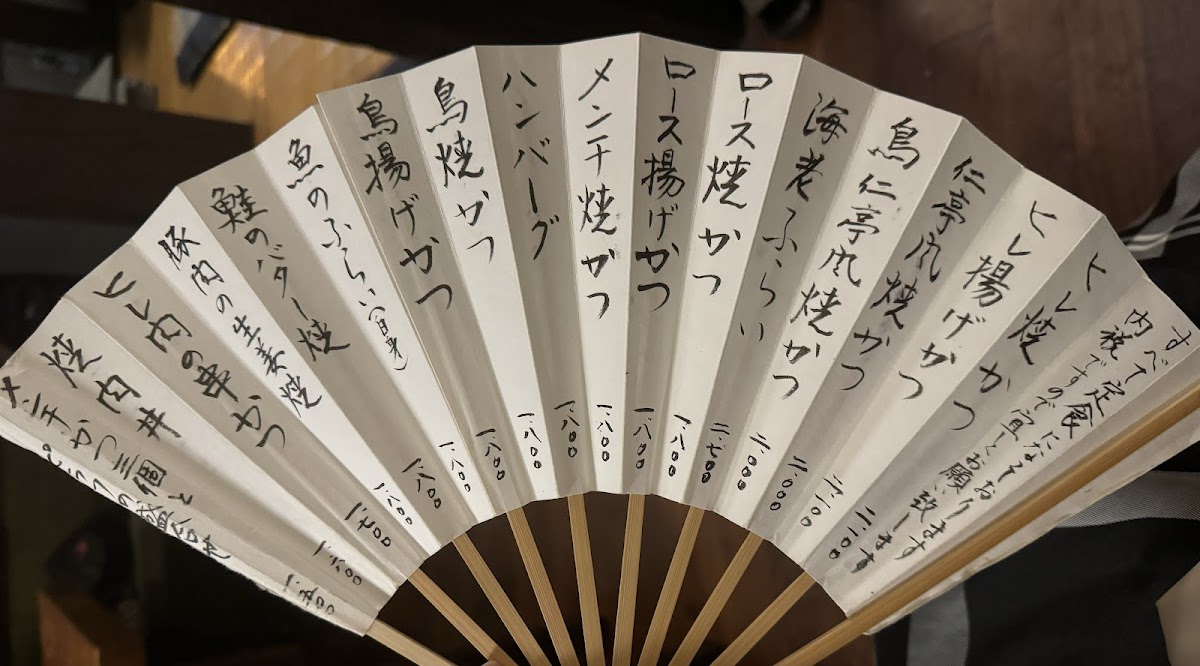 すべて定食になっております
内税ですので宜しくお願い致します
ヒレ焼かつ 二、二〇〇
ヒレ揚げかつ 二、二〇〇
仁亭風焼かつ 二、〇〇〇
鳥仁亭風焼かつ 二、〇〇〇
海老ふらい 二、七〇〇
ロース焼かつ 一、八〇〇
ロース揚げかつ 一、八〇〇
メンチ焼かつ 一、八〇〇
ハンバーグ 一、八〇〇
鳥焼かつ 一、八〇〇
鳥揚げかつ 一、八〇〇
魚のふらい(白身) 一、八〇〇
鮭のバター焼 一、八〇〇
豚肉の生姜焼 一、八〇〇
ヒレ肉の串かつ 一、七〇〇
焼肉丼 一、六〇〇
メンチかつ三個と
の盛合せ 一、五〇〇